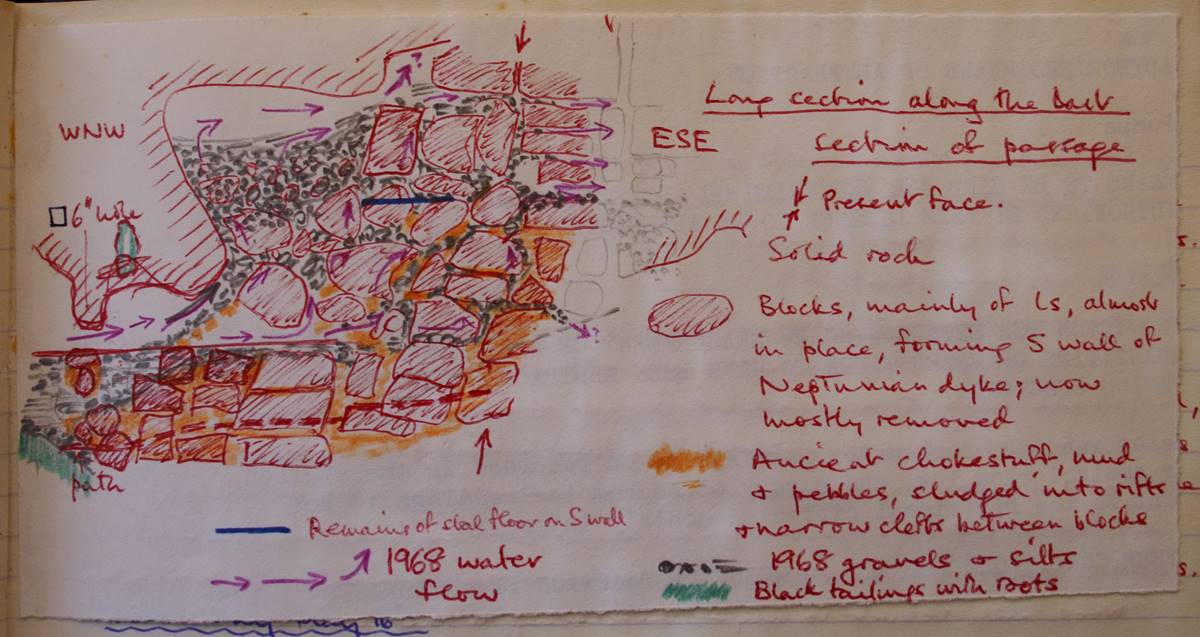 Long section along the back
section of passage
WNW
ESE
6" hole
Present face.
Solid rock
Blocks, mainly of ls, almost
in place, forming S wall of
Neptunian dyke; now
mostly removed
Ancient chokestuff, mud
& pebbles, sludged into rifts
& narrow clefts between blocks
path
Remains of stal floor on S wall
1968 water
flow
1968 gravels & silts
Black tailings with roots
?
?